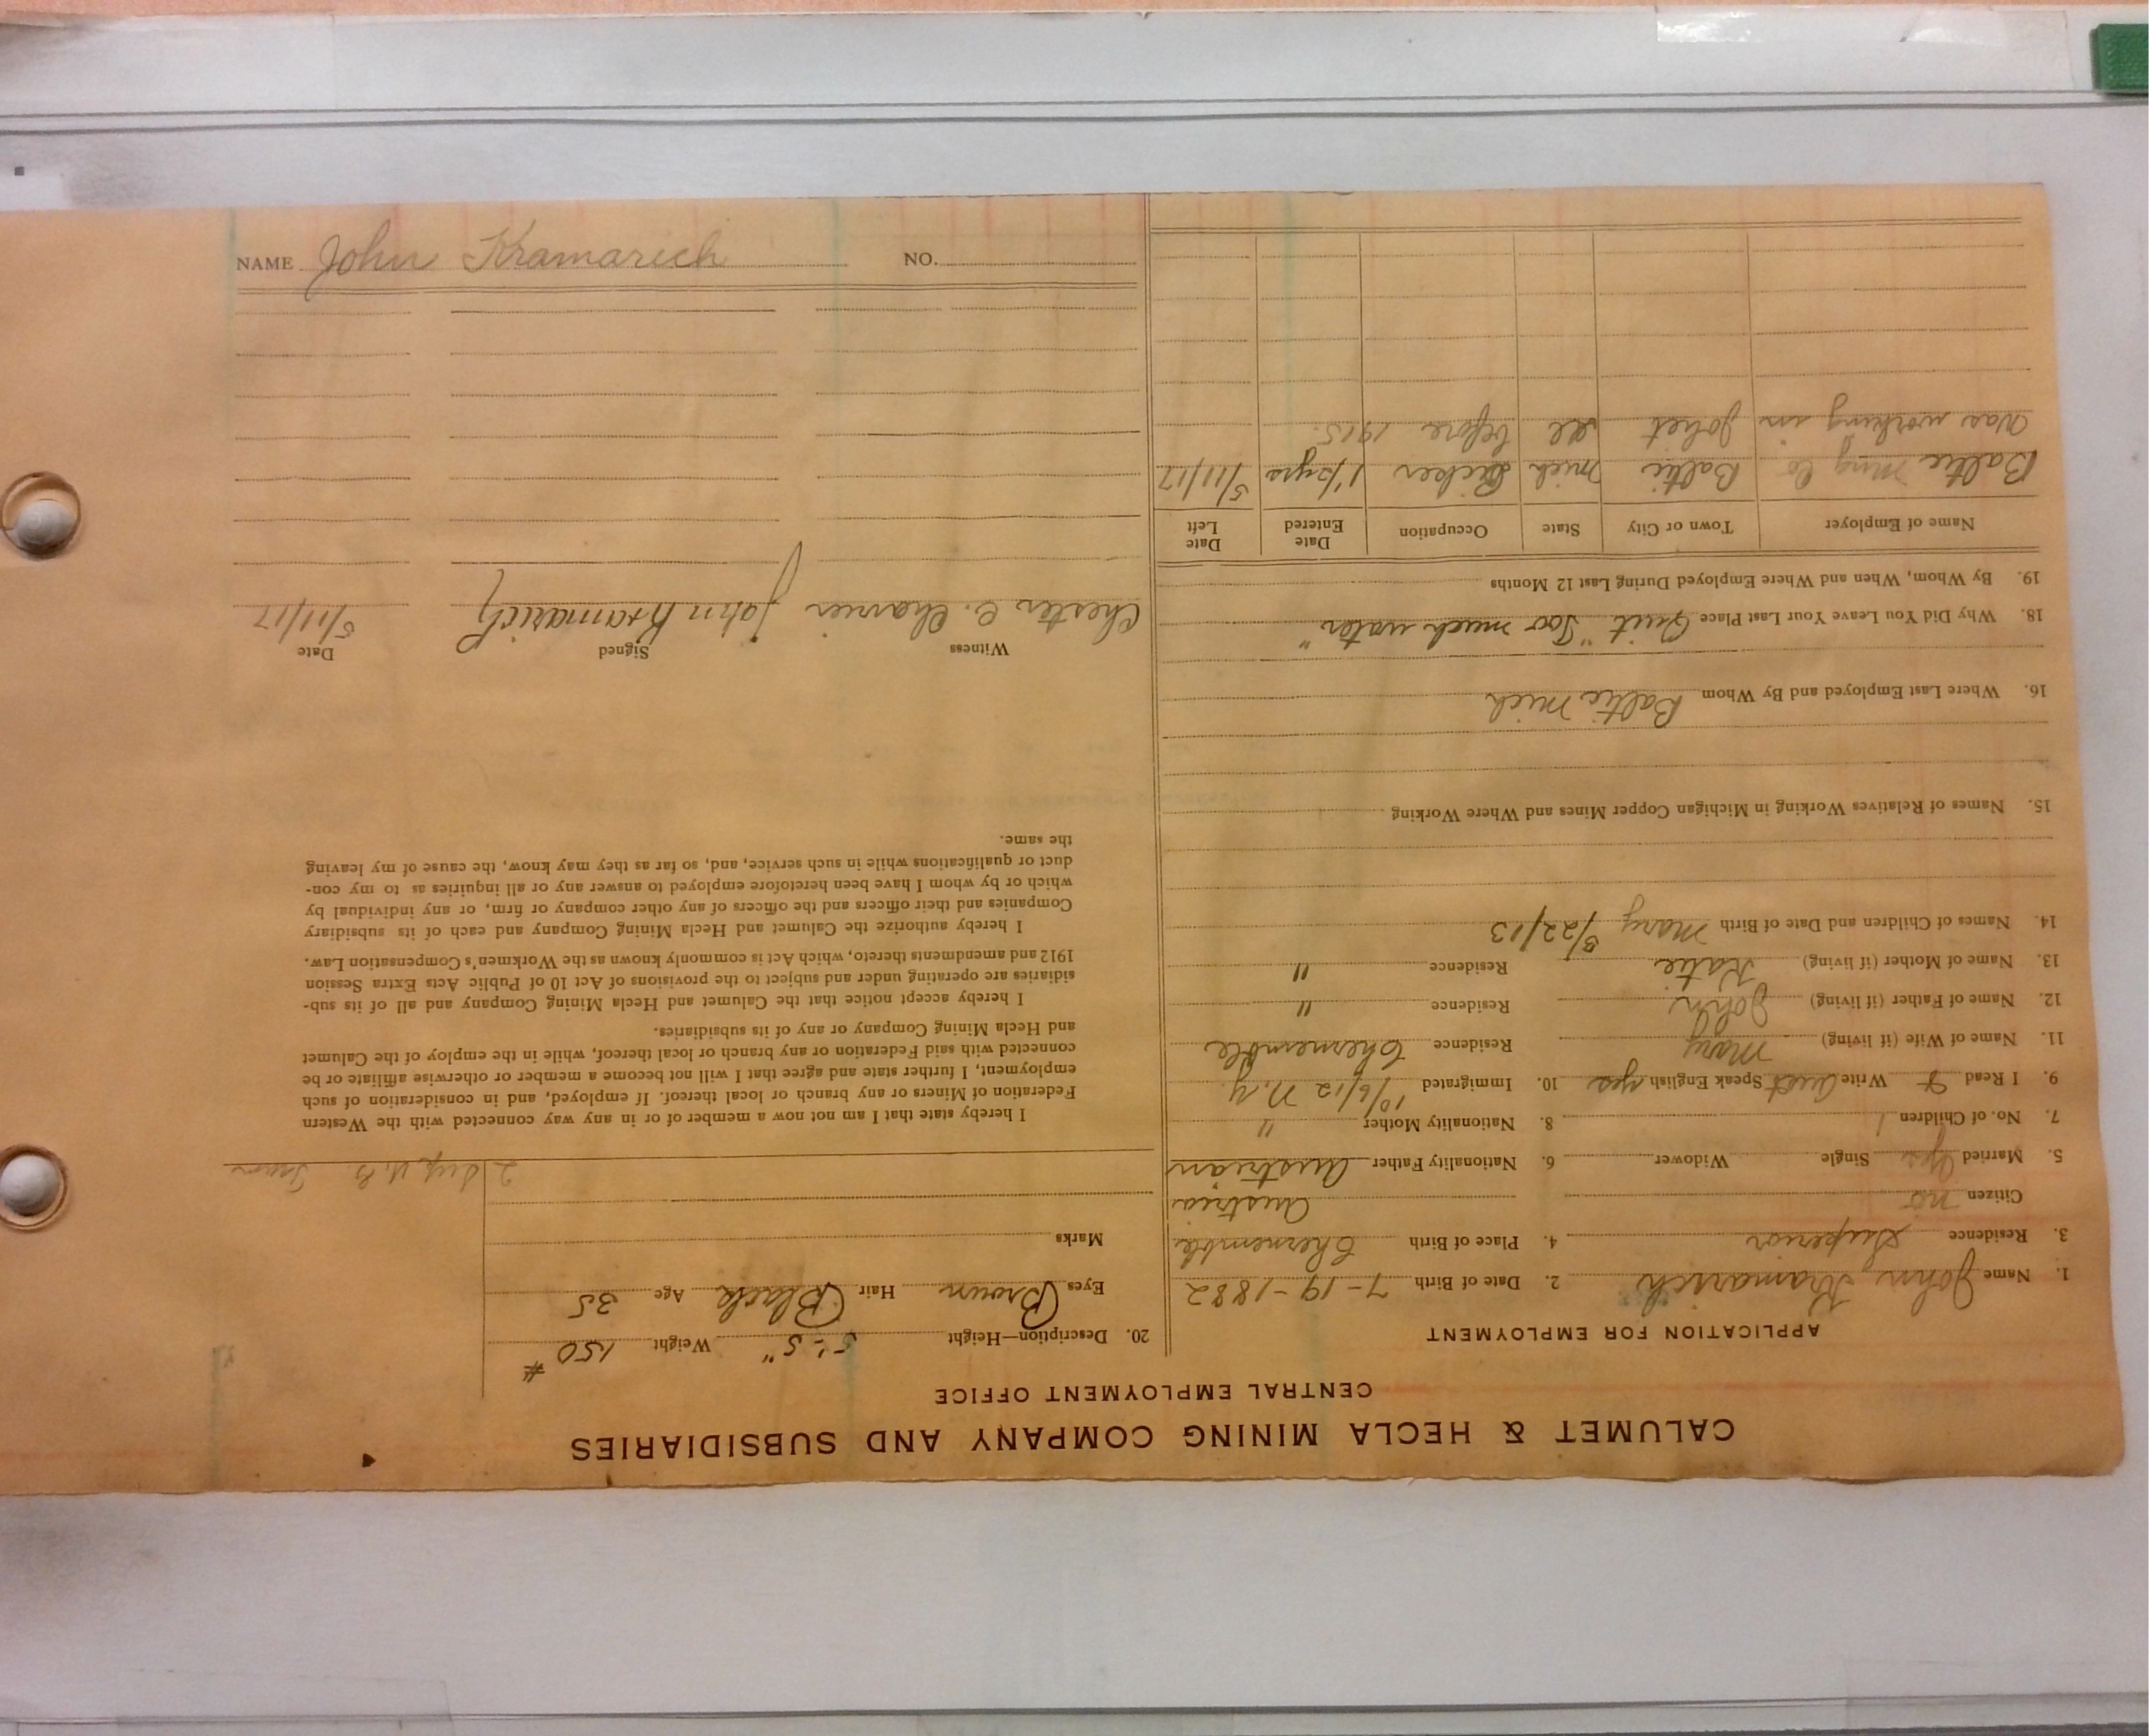 CALUMET & HECLA MINING COMPANY AND SUBSIDIARIES
CENTRAL EMPLOYMENT OFFICE
APPLICATION FOR EMPLOYMENT
1. Name John Kramarich 2. Date of Birth 7-19-1882
3. Residence Superior 4. Place of Birth Chernemble
Citizen no Austria
5. Married Yes Single Widower 6. Nationality Father Austrian
7. No. of Children 1 8. Nationality Mother "
9. I Read & Write Aust Speak English yes 10. Immigrated 10/6/12 N.Y.
11. Name of Wife (if living) Mary Residence Chernemble
12. Name of Father (if living) John Residence "
13. Name of Mother (if living) Katie Residence "
14. Names of Children and Date of Birth Mary 3/22/13
15. Names of Relatives Working in Michigan Copper Mines and Where Working
16. Where Last Employed and By Whom Baltic Mich
18. Why Did You Leave Your Last Place Quit "Too much water"
19. By Whom, When and Where Employed During Last 12 Months
Name of Employer Town or City State Occupation Date Entered Date Left
Baltic Ming Co Baltic Mich 1½yrs 5/11/17
Was working in Joliet Ill before 1915.
20. Description—Height 5'-5" Weight 150 #
Eyes Brown Hair Black Age 35
Marks
2
I hereby state that I am not now a member of or in any way connected with the Western
Federation of Miners or any branch or local thereof. If employed, and in consideration of such
employment, I further state and agree that I will not become a member or otherwise affiliate or be
connected with said Federation or any branch or local thereof, while in the employ of the Calumet
and Hecla Mining Company or any of its subsidiaries.
I hereby accept notice that the Calumet and Hecla Mining Company and all of its sub-
sidiaries are operating under and subject to the provisions of Act 10 of Public Acts Extra Session
1912 and amendments thereto, which Act is commonly known as the Workmen's Compensation Law.
I hereby authorize the Calumet and Hecla Mining Company and each of its subsidiary
Companies and their officers and the officers of any other company or firm, or any individual by
which or by whom I have been heretofore employed to answer any or all inquiries as to my con-
duct or qualifications while in such service, and, so far as they may know, the cause of my leaving
the same.
Witness Signed Date
Chester C. John Kramarich 5/11/17
NAME John Kramarich NO.